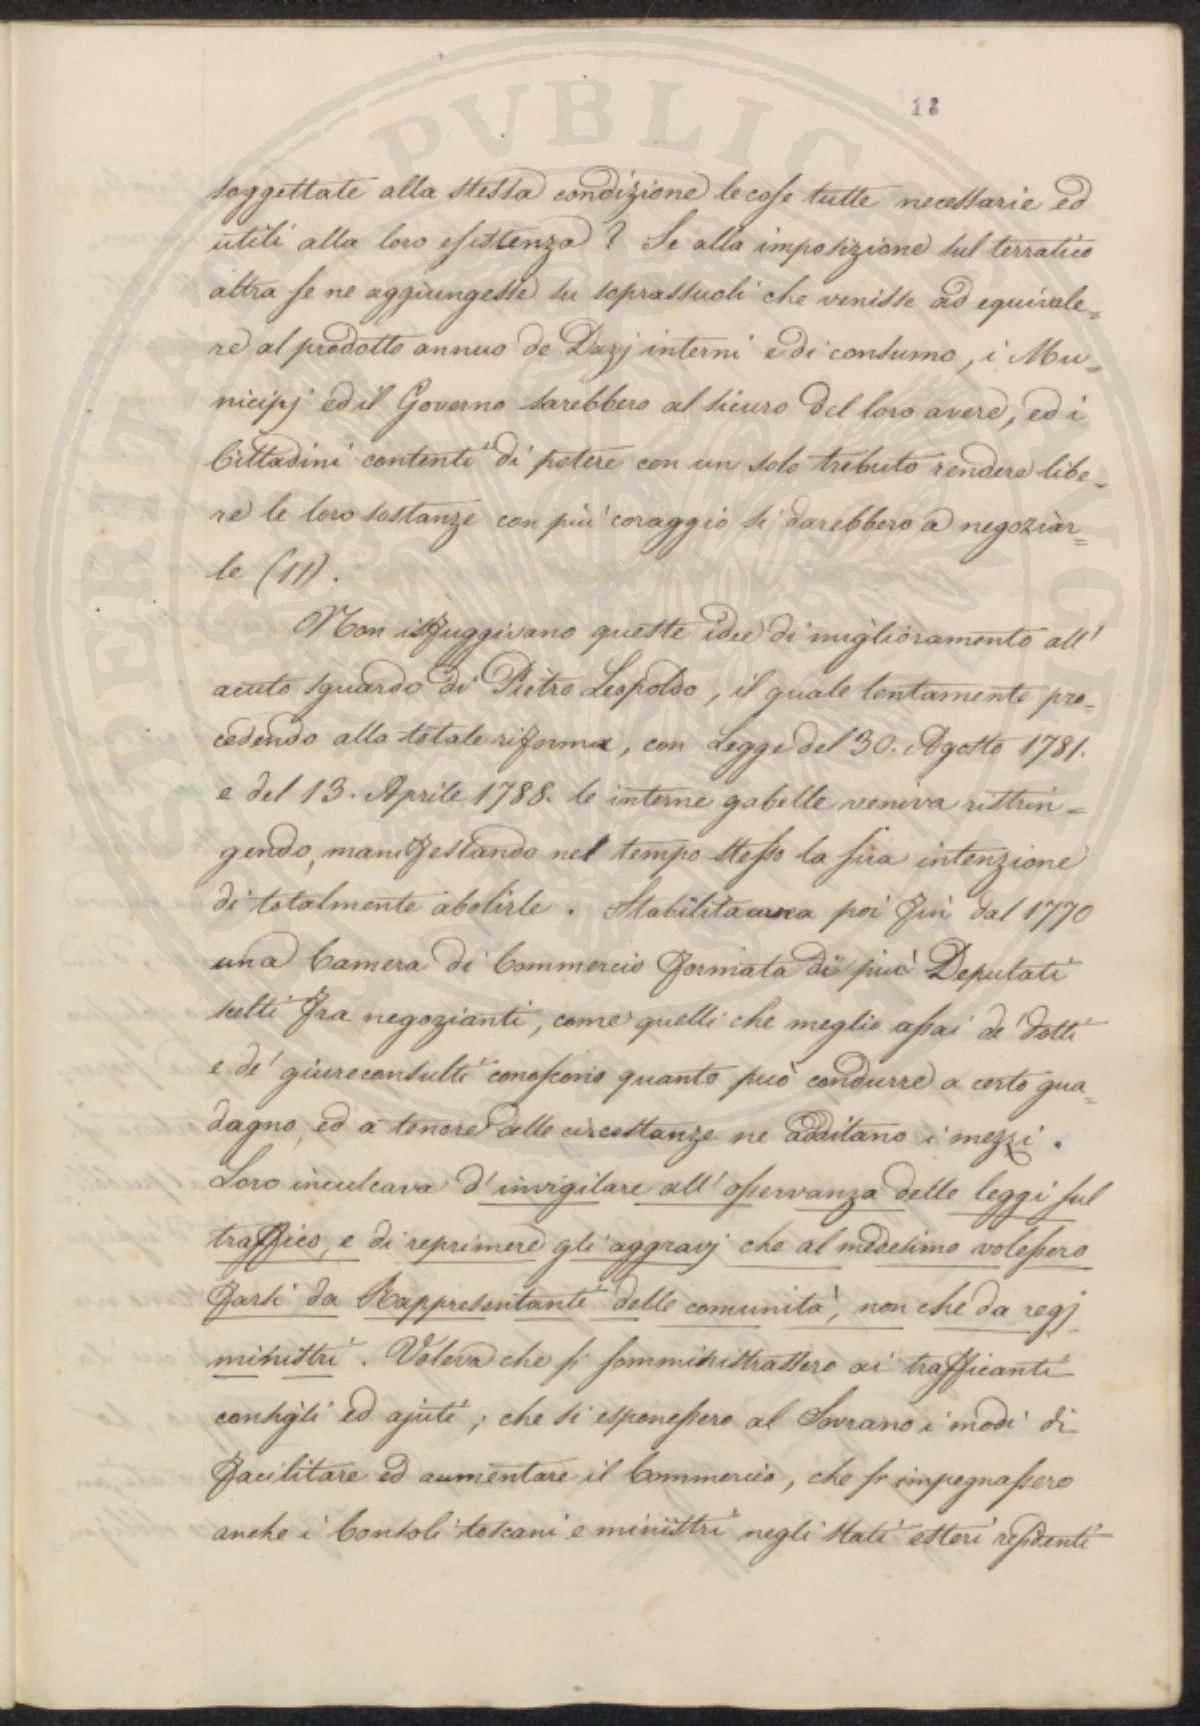 PVBLICA
SPERITATI
18
soggettate alla stessa condizione le cose tutte necessarie ed
utili alla loro esistenza? Se alla imposizione sul terratico
altra se ne aggiungesse su soprassuoli che venisse ad equivale=
re al prodotto annuo de Dazj interni e di consumo, i Mu=
nicipj ed il Governo sarebbero al sicuro del loro avere, ed i
Cittadini contenti di potere con un solo tributo rendere libe=
re le loro sostanze con più coraggio si darebbero a negoziar=
le (11).
Non isfuggivano queste idee di miglioramento all'
acuto sguardo di Pietro Leopoldo, il quale lentamente pro=
cedendo alla totale riforma, con Legge del 30. Agosto 1781.
e del 13. Aprile 1788. le interne gabelle veniva ristrin=
gendo, manifestando nel tempo stesso la sua intenzione
di totalmente abolirle. Stabilita aveva poi fin dal 1770
una Camera di Commercio formata di più Deputati
scelti fra negozianti, come quelli che meglio assai de' dotti
e de' giureconsulti conoscono quanto può condurre a certo gua=
dagno, ed a tenore delle circostanze ne additano i mezzi.
Loro inculcava d'invigilare all'osservanza delle leggi sul
traffico, e di reprimere gli aggravj che al medesimo volessero
farsi da Rappresentanti delle comunità, non che da regj
ministri. Voleva che si somministrassero ai trafficanti
consigli ed ajuti; che si esponessero al Sovrano i modi di
facilitare ed aumentare il Commercio, che s'impegnassero
anche i Consoli toscani e ministri negli stati esteri residenti